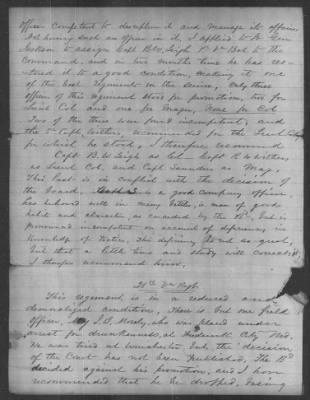 officer competent to discipline and manage its affairs
Not having such an officer in it, I applied to Lt Gen
Jackson to assign Capt B. W. Leigh 1st Va Bat to the
command, and in two months time he has res-
tored it to a good condition, making it one
of the best regiments in the service. Only three
officers of this regiment stood for promotion, two for
Lieut Col. and one for Major, None for Col.
Two of the three were found incompetent, and
the 3rd Capt. Withers, recommended for the Lieut Colcy
for which he stood, I therefore recommend
Capt B. W. Leigh as Col - Capt R W Withers,
as Lieut Col. and Capt Saunders as Maj.
This last is in conflict with the decision of
the Board. is a good company officer,
has behaved well in many battles, is a man of good
habits and character, as conceded by the Bd, but is
pronounced incompetent on account of deficiency in
knowledge of tactics. This deficiency is not so great,
but that a little time and study will correct it
I therefore recommend him.
Va Regt.
This regiment is in a reduced and
demoralized condition, There is but one field
officer, Maj J. B. Moseley, who was placed under
arrest for drunkenness, at Frederick City Md.
He was tried at Winchester but the decision
of the Court has not been published. The Bd
decided against his promotion, and I have
recommended that he be dropped, being